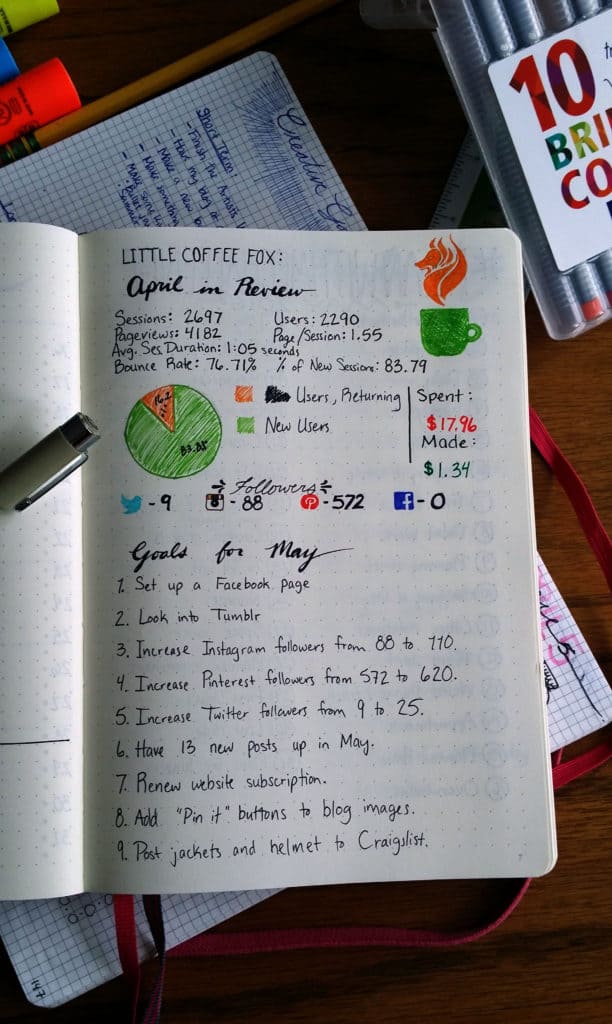 Creative
Short Term:
- Finish the Artists
- Have my blog
- Make a new
- Make something
10
LITTLE COFFEE FOX:
April in Review
Sessions: 2697 Users: 2290
Pageviews: 4182 Page/Session: 1.55
Avg. Ses. Duration: 1:05 seconds
Bounce Rate: 76.71% % of New Sessions: 83.79
16.2 %
83.8%
Users, Returning
New Users
Spent:
$17.96
Made:
$1.34
Followers
- 9 - 88 - 572 - 0
Goals for May
1. Set up a Facebook page
2. Look into Tumblr
3. Increase Instagram followers from 88 to 110.
4. Increase Pinterest followers from 572 to 620.
5. Increase Twitter followers from 9 to 25.
6. Have 13 new posts up in May.
7. Renew website subscription.
8. Add "Pin it" buttons to blog images.
9. Post jackets and helmet to Craigslist.
7
147